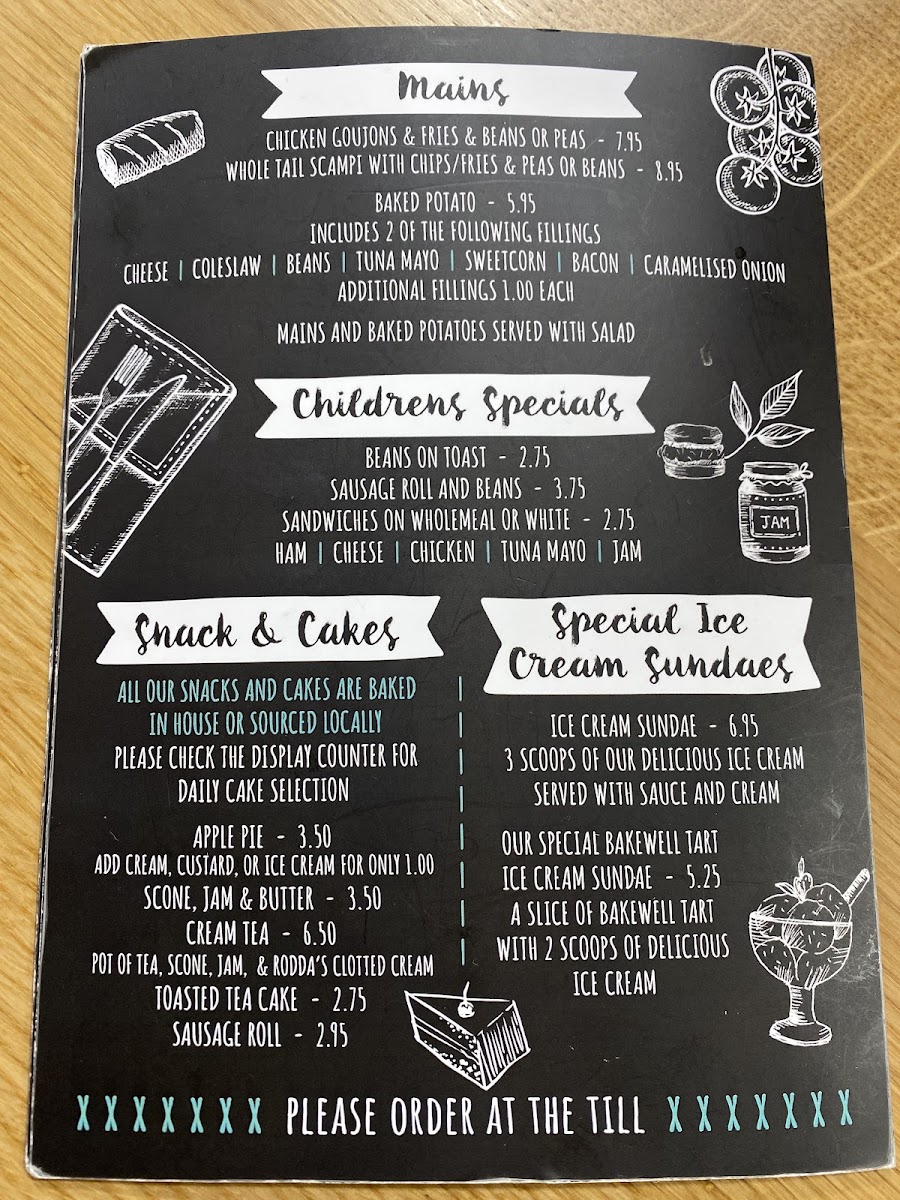 Mains
CHICKEN GOUJONS & FRIES & BEANS OR PEAS - 7.95
WHOLE TAIL SCAMPI WITH CHIPS/FRIES & PEAS OR BEANS - 8.95
BAKED POTATO - 5.95
INCLUDES 2 OF THE FOLLOWING FILLINGS
CHEESE | COLESLAW | BEANS | TUNA MAYO | SWEETCORN | BACON | CARAMELISED ONION
ADDITIONAL FILLINGS 1.00 EACH
MAINS AND BAKED POTATOES SERVED WITH SALAD
Childrens Specials
BEANS ON TOAST - 2.75
SAUSAGE ROLL AND BEANS - 3.75
SANDWICHES ON WHOLEMEAL OR WHITE - 2.75
HAM | CHEESE | CHICKEN | TUNA MAYO | JAM
JAM
Snack & Cakes
ALL OUR SNACKS AND CAKES ARE BAKED
IN HOUSE OR SOURCED LOCALLY
PLEASE CHECK THE DISPLAY COUNTER FOR
DAILY CAKE SELECTION
APPLE PIE - 3.50
ADD CREAM, CUSTARD, OR ICE CREAM FOR ONLY 1.00
SCONE, JAM & BUTTER - 3.50
CREAM TEA - 6.50
POT OF TEA, SCONE, JAM, & RODDA'S CLOTTED CREAM
TOASTED TEA CAKE - 2.75
SAUSAGE ROLL - 2.95
Special Ice
Cream Sundaes
ICE CREAM SUNDAE - 6.95
3 SCOOPS OF OUR DELICIOUS ICE CREAM
SERVED WITH SAUCE AND CREAM
OUR SPECIAL BAKEWELL TART
ICE CREAM SUNDAE - 5.25
A SLICE OF BAKEWELL TART
WITH 2 SCOOPS OF DELICIOUS
ICE CREAM
X X X X X X X PLEASE ORDER AT THE TILL X X X X X X X